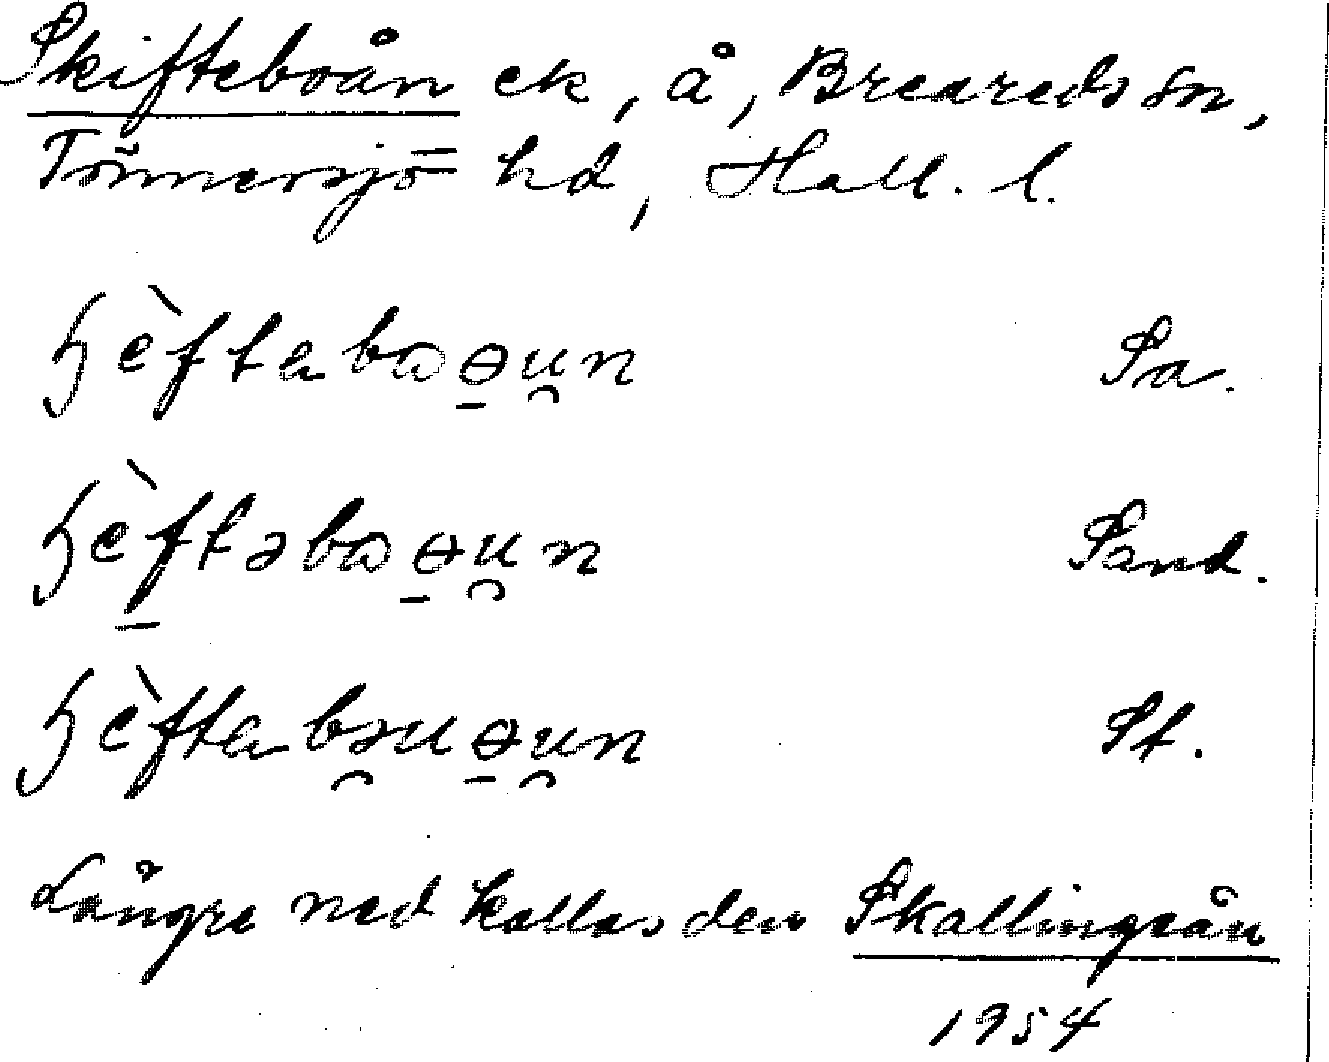 Skifteboån ek, å, Breareds sn,
Tönnersjö hd, Hall. l.
ɧèftabɷɵu̯n Sa.
ɧèftəbɷɵu̯n Sand.
ɧèftabə̯uɵu̯n St.
Längre ned kallas den Skallingeån
1954